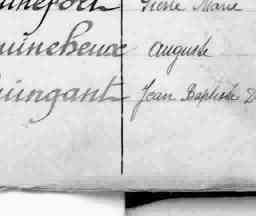 Pierre Marie
uineheux Auguste
uingant Jean Baptiste